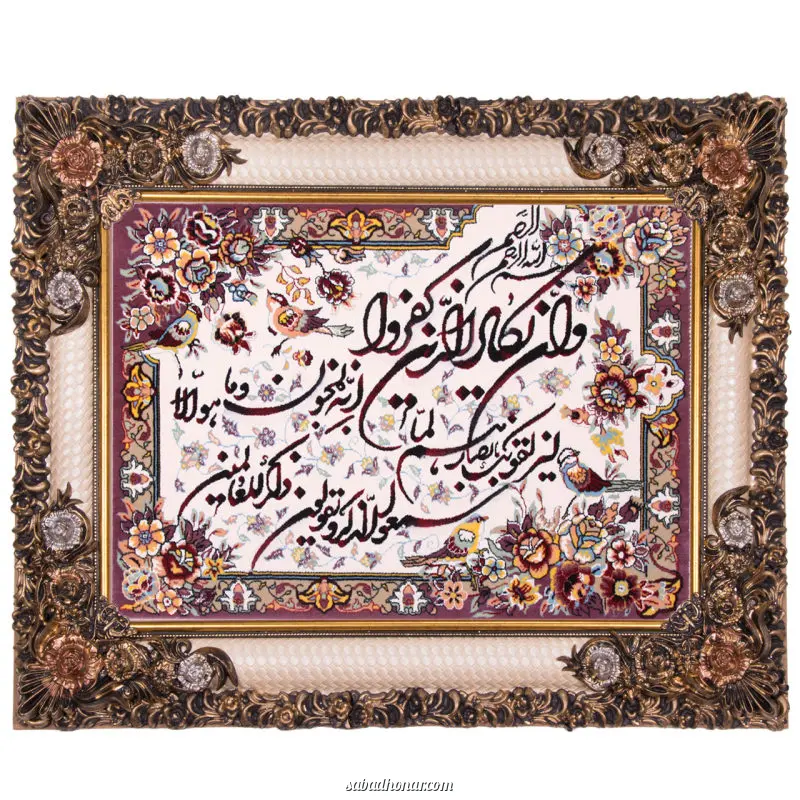 بسم الله الرحمن الرحیم
وان یکاد الذین کفروا
لیزلقونک بابصارهم لما
سمعوا الذکر و یقولون
انه لمجنون وما هو الا
ذکر للعالمین
sabadhonar.com